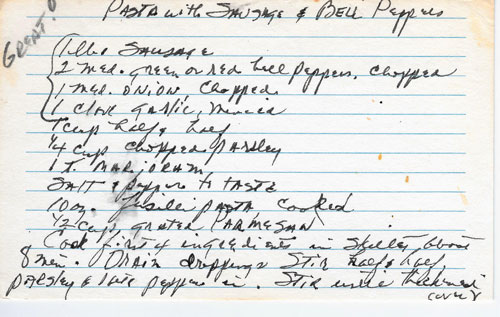 PASTA with SAUSAGE & BELL Peppers
GREAT!
1 lb. SAUSAGE
2 med. green or red bell peppers, chopped
1 med. ONION, chopped
1 clove garlic, minced
1 cup half & half
1/4 cup chopped parsley
1 t. MARJORAM
Salt & pepper to taste
10 oz. fusilli pasta cooked
1/2 cup grated PARMESAN
Cook first 4 ingredients in skillet about
8 min. Drain drippings Stir half & half
parsley & pepper in. Stir until thickened
cover